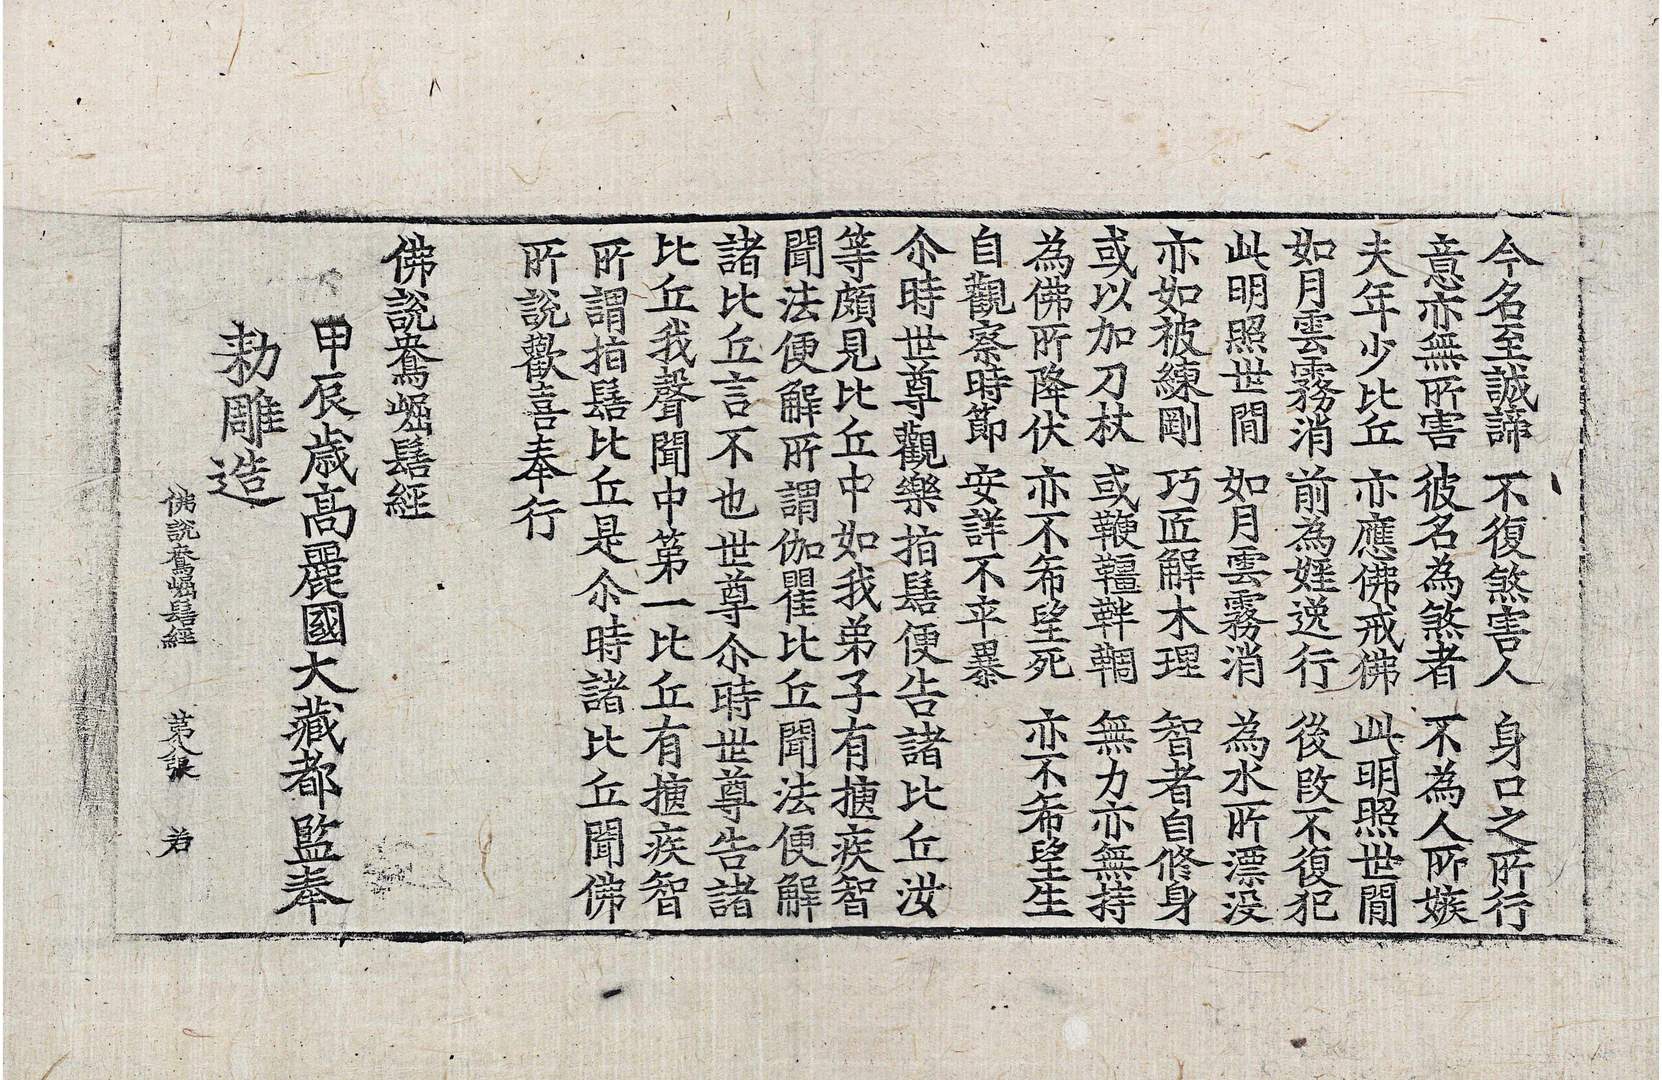 今名至誠諦 不復煞害人 身口之所行
意亦無所害 彼名為煞者 不為人所嫉
夫年少比丘 亦應佛戒佛 此明照世閒
如月雲霧消 前為婬逸行 後改不復犯
此明照世間 如月雲霧消 為水所漂没
亦如被練剛 巧匠解木理 智者自修身
或以加刀杖 或鞭韁靽䩦 無力亦無持
為佛所降伏 亦不希望死 亦不希望生
自觀察時節 安詳不卒暴
尒時世尊觀樂指髻便告諸比丘汝
等頗見比丘中如我弟子有𢴃疾智
聞法便解所謂伽瞿比丘聞法便解
諸比丘言不也世尊尒時世尊告諸
比丘我聲聞中第一比丘有𢴃疾智
所謂指髻比丘是尒時諸比丘聞佛
所說歡喜奉行
佛說鴦崛髻經
甲辰歲高麗國大藏都監奉
勑雕造
佛說鴦崛髻經 第八張 若